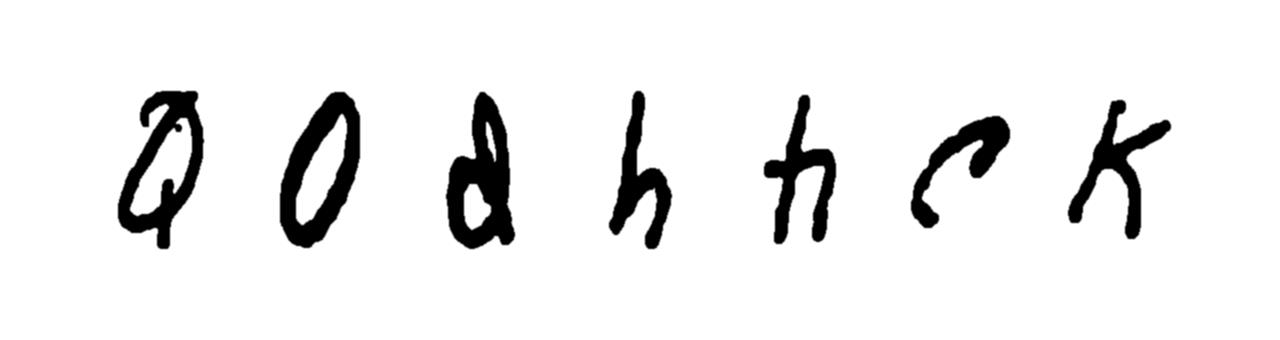 Q O d h h c K